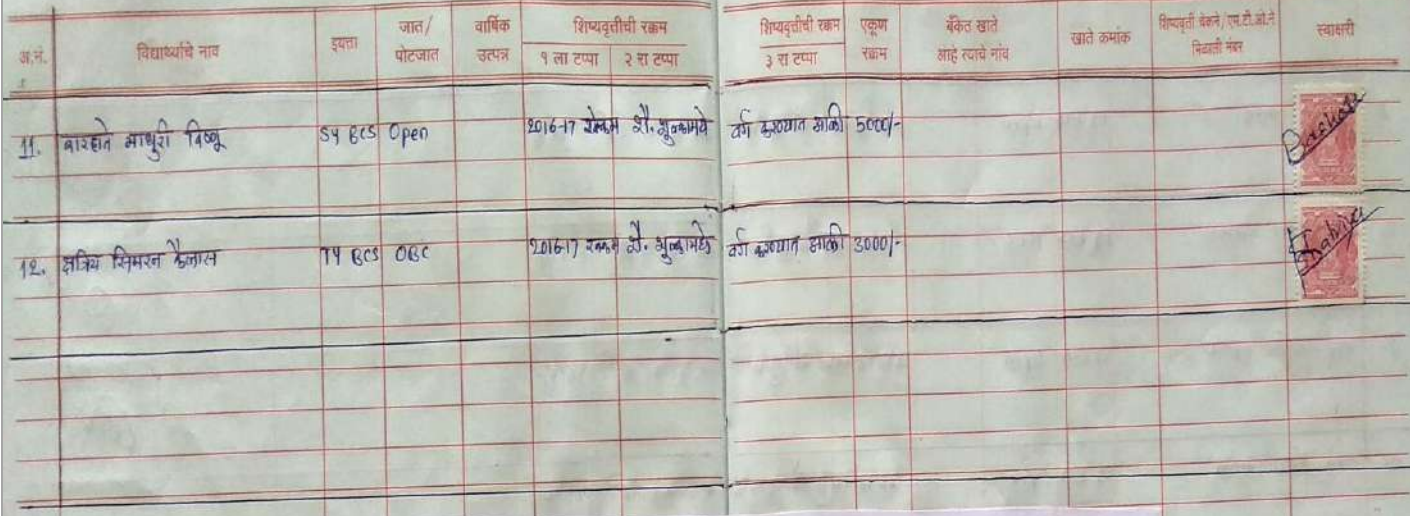 अ.नं. विद्यार्थ्यांचे नाव इयत्ता जात/ पोटजात वार्षिक उत्पन्न शिष्यवृत्तीची रक्कम १ ला टप्पा २ रा टप्पा शिष्यवृत्तीची रक्कम ३ रा टप्पा एकूण रक्कम बँकेत खाते आहे त्याचे नांव खाते क्रमांक शिष्यवृत्ती चेकने/एम.टी.ओ.ने मिळाली नंबर स्वाक्षरी
11. बारहाते माधुरी विष्णू SY BCS Open 2016-17 रक्कम शै. शुल्कामध्ये वर्ग करण्यात आली 5000/-
12. क्षत्रिय सिमरन कैलास TY BCS OBC 2016-17 रक्कम शै. शुल्कामध्ये वर्ग करण्यात आली 3000/-